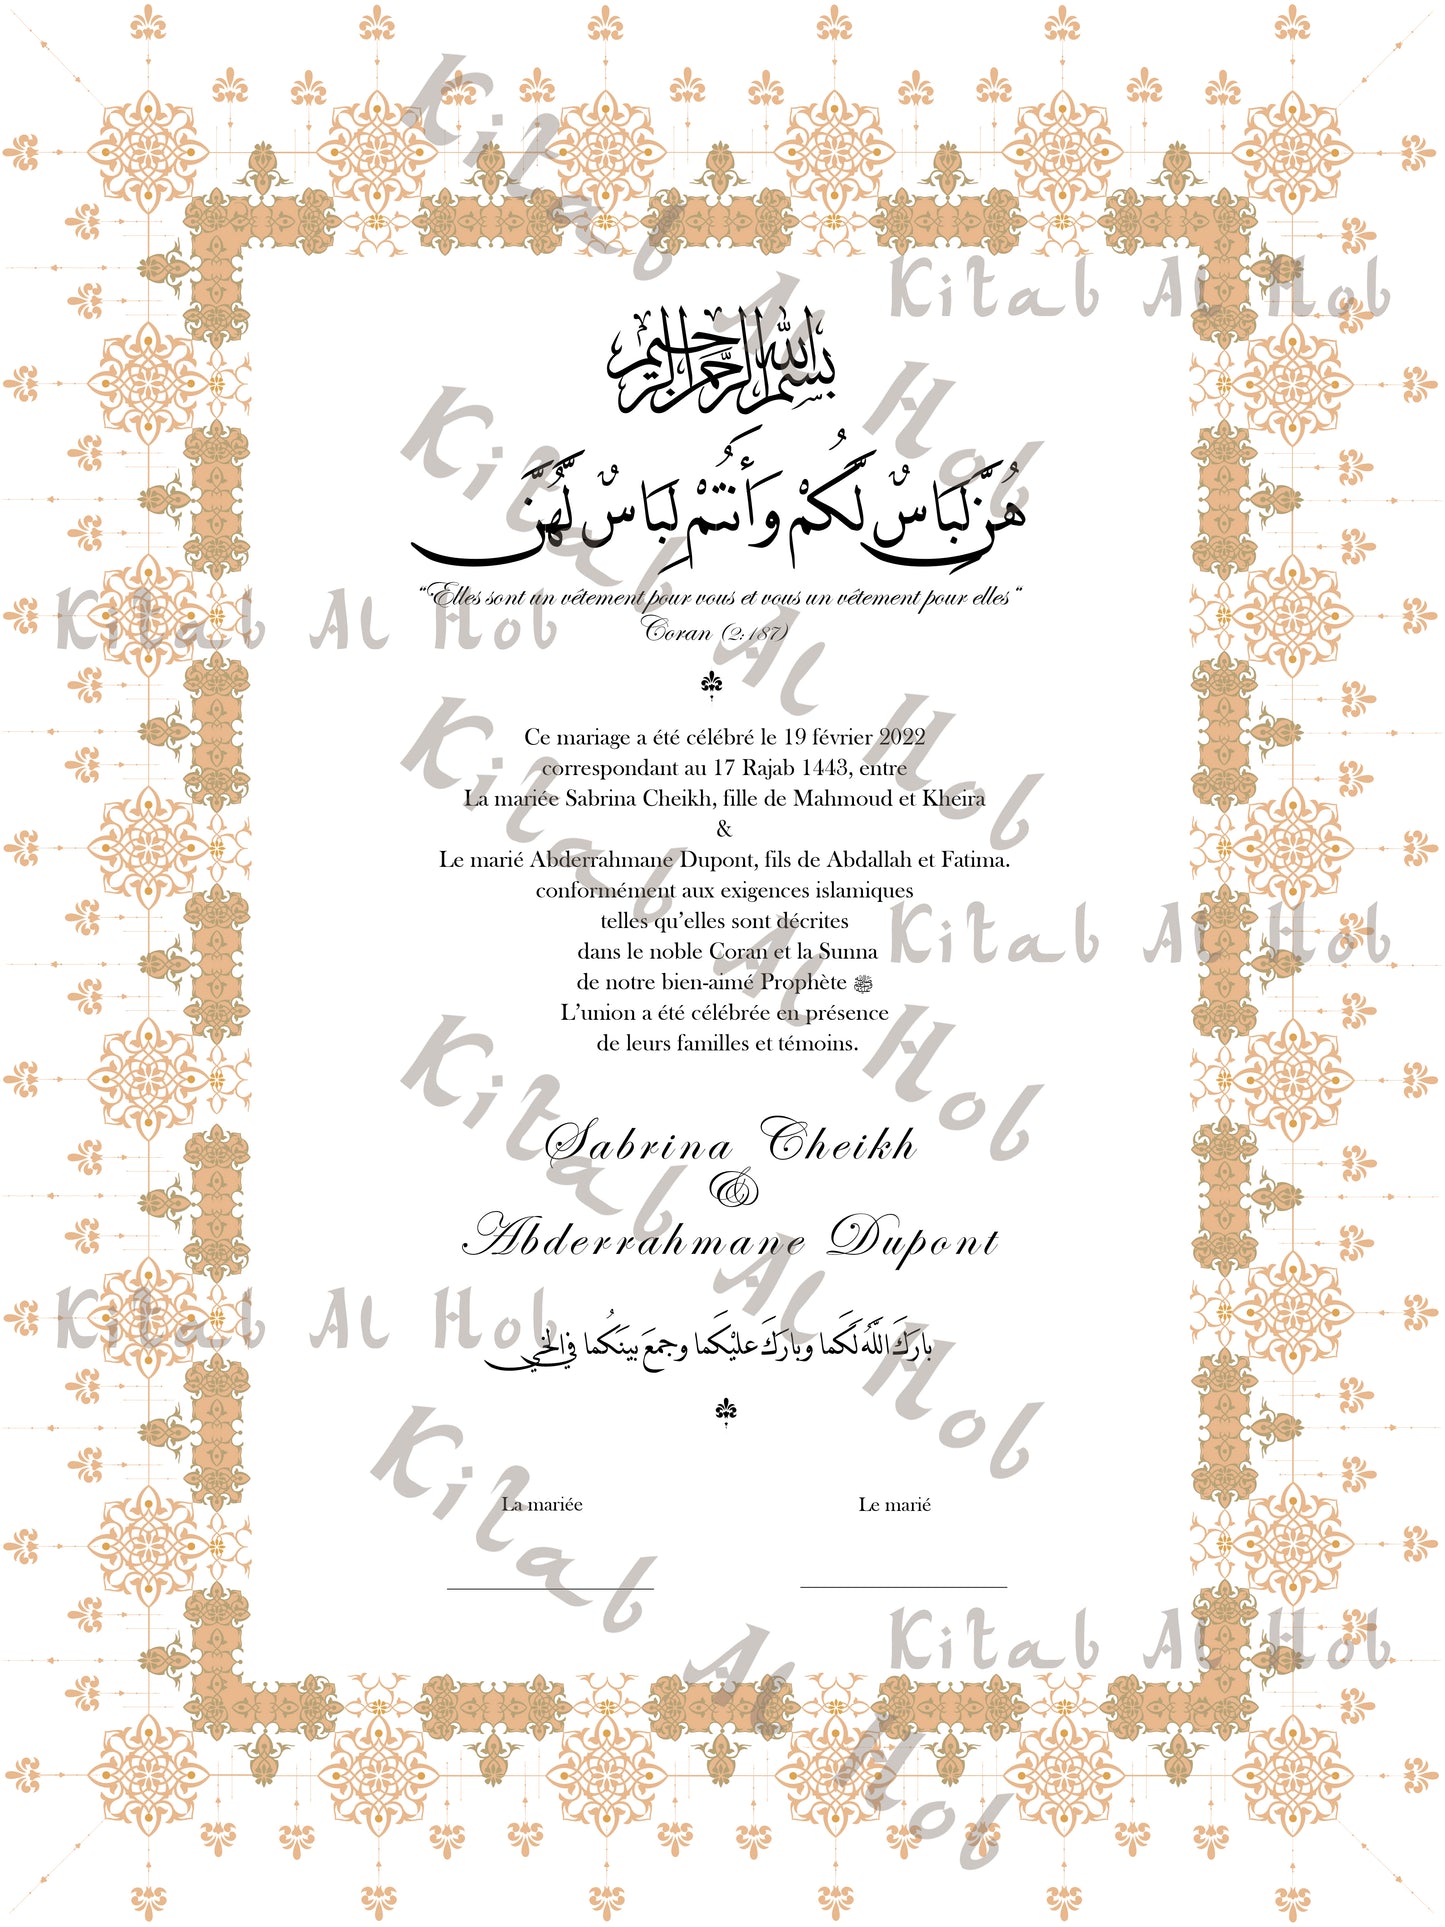 بسم الله الرحمن الرحيم
هُنَّ لِبَاسٌ لَّكُمْ وَأَنتُمْ لِبَاسٌ لَّهُنَّ
“Elles sont un vêtement pour vous et vous un vêtement pour elles “
Coran (2:187)
Ce mariage a été célébré le 19 février 2022
correspondant au 17 Rajab 1443, entre
La mariée Sabrina Cheikh, fille de Mahmoud et Kheira
&
Le marié Abderrahmane Dupont, fils de Abdallah et Fatima.
conformément aux exigences islamiques
telles qu’elles sont décrites
dans le noble Coran et la Sunna
de notre bien-aimé Prophète ﷺ
L’union a été célébrée en présence
de leurs familles et témoins.
Sabrina Cheikh
&
Abderrahmane Dupont
بارَكَ اللَّهُ لَكَما وبارَكَ عليْكَما وجمعَ بينَكُما في الخي
La mariée
Le marié
Kitab Al Hob
Kitab Al Hob
Kitab Al Hob
Kitab Al Hob
Kitab Al Hob
Kitab Al Hob
Kitab Al Hob
Kitab Al Hob
Kitab Al Hob
Kitab Al Hob